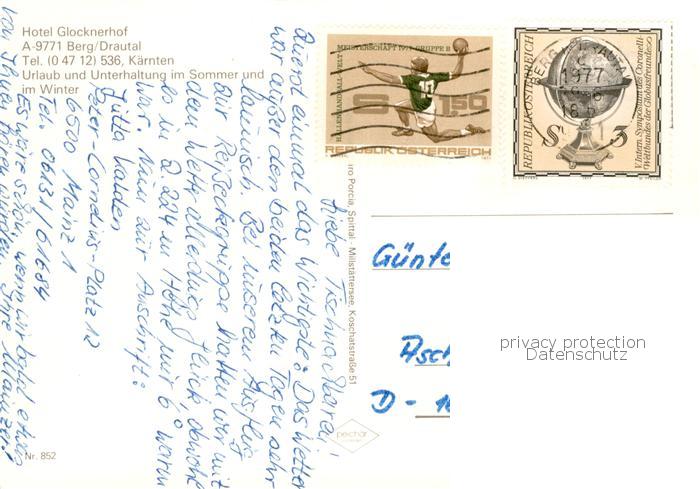 Hotel Glocknerhof
A-9771 Berg/Drautal
Tel. (0 47 12) 536, Kärnten
Urlaub und Unterhaltung im Sommer und
im Winter
HALLENHANDBALL-WELT
MEISTERSCHAFT 1977 GRUPPE B
S 1,50
REPUBLIK ÖSTERREICH
REPUBLIK ÖSTERREICH
S 3
V. Intern. Symposium des Coronelli-
Weltbundes der Globusfreunde
1977
Liebe
Zuerst einmal das Wichtigste: Das Wetter
war außer den beiden letzten Tagen sehr
launisch. Bei unserem Ausflug
zur Reißeckgruppe hatten wir mit
dem Wetter allerdings Glück, obwohl
es in 2.224 m Höhe nur 6° warm
war. Nun zur Anschrift:
Jutta Walden
Peter-Cornelius-Platz 12
6500 Mainz 1
Tel. 06131/61684
Es wäre schön, wenn wir bald etwas
von Ihnen hören würden. Ihre Mainzer!
Porcia, Spittal - Millstättersee, Koschatstraße 51
Günte
Asch
D -
pechar
Nr. 852
privacy protection
Datenschutz